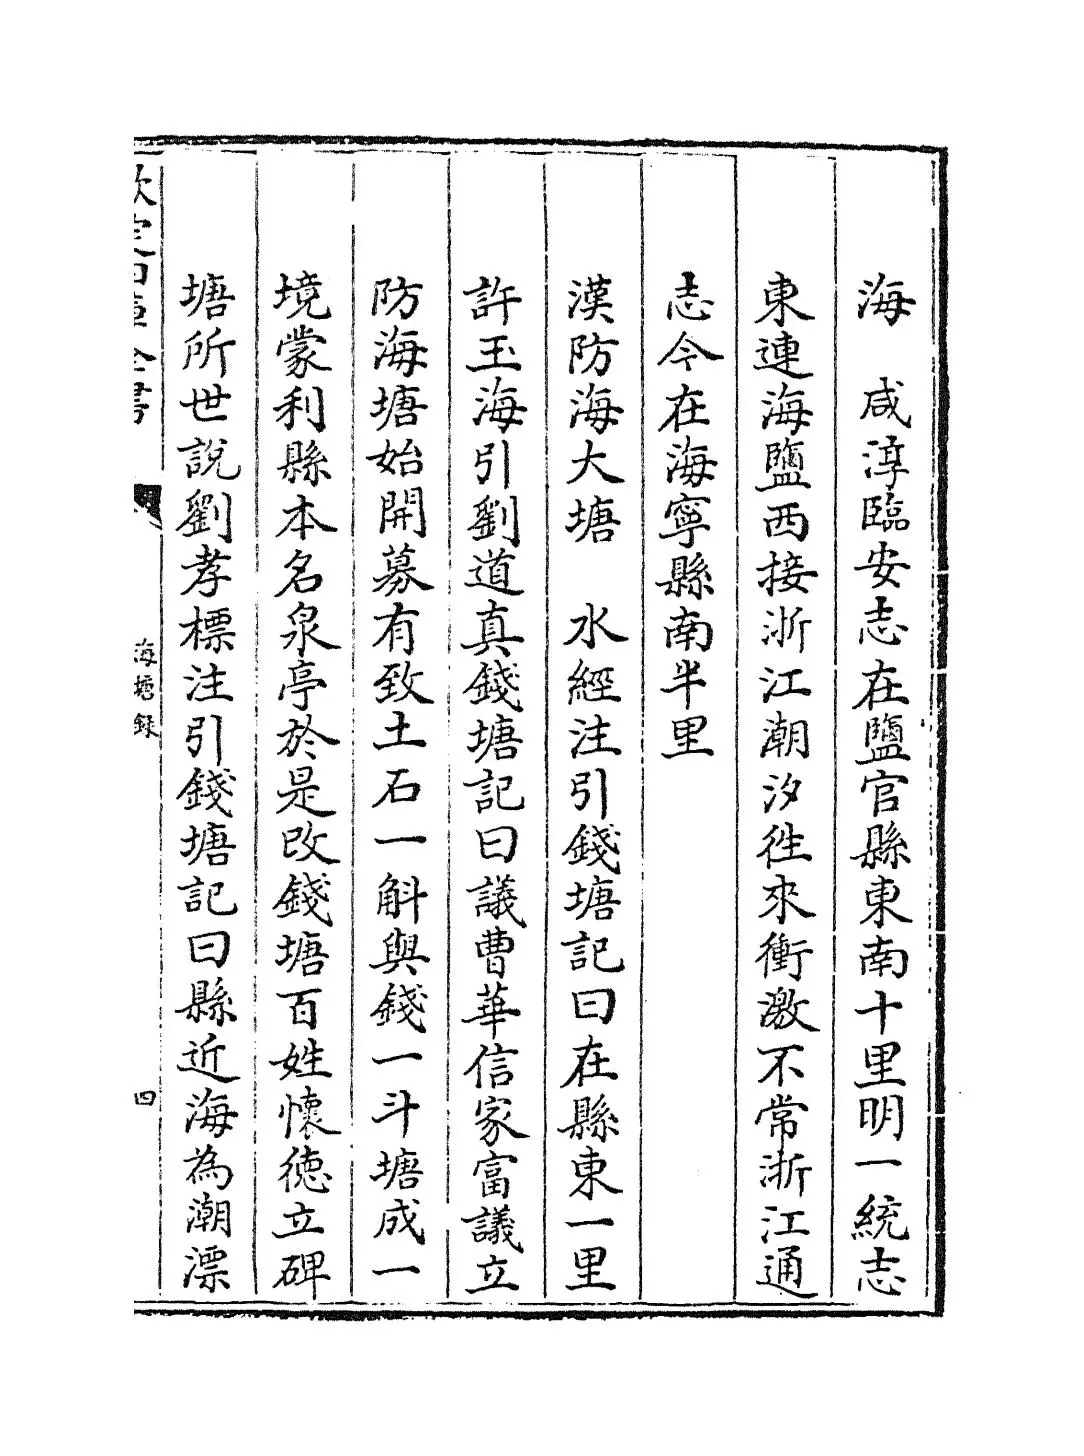 海　咸淳臨安志在鹽官縣東南十里明一統志
東連海鹽西接浙江潮汐徃來衝激不常浙江通
志今在海寧縣南半里
漢防海大塘　水經注引錢塘記曰在縣東一里
許玉海引劉道真錢塘記曰議曹華信家富議立
防海塘始開募有致土石一斛與錢一斗塘成一
境蒙利縣本名泉亭於是改錢塘百姓懷徳立碑
塘所世説劉孝標注引錢塘記曰縣近海為潮漂
欽定四庫全書
海塘録
四